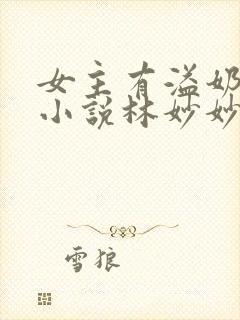 女主有溢奶
小说林妙妙
雪狼